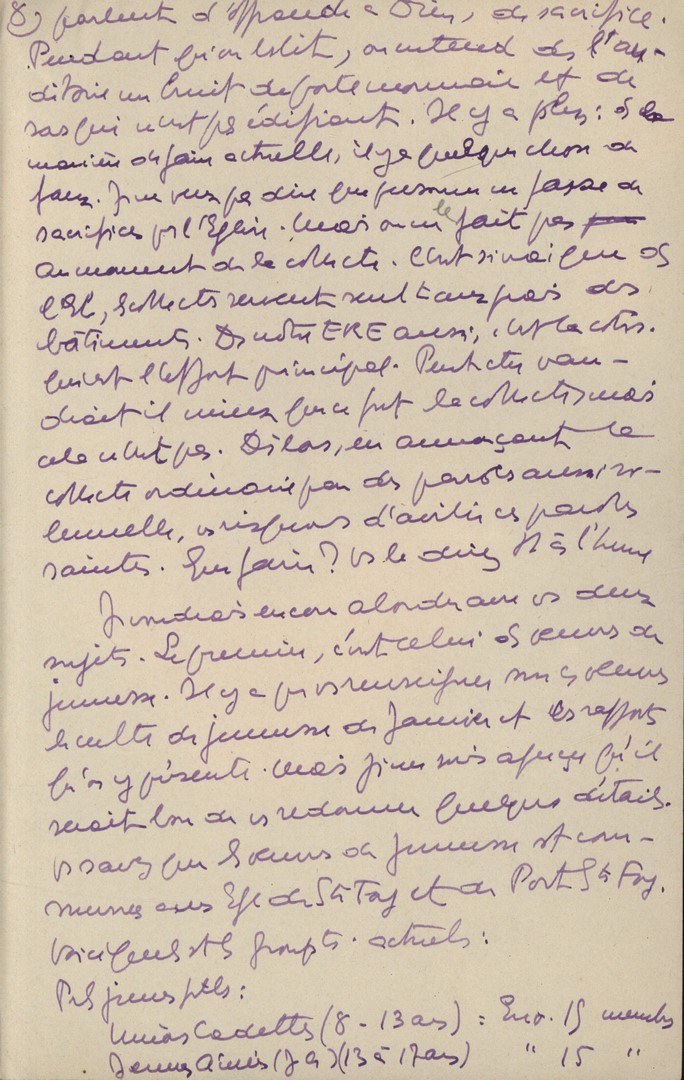 8) parlent d'offrande à Dieu, de sacrifice.
Pendant qu'on les lit, on entend ds l'au-
ditoire un bruit de portemonnaie et de
sacs qui n'est pas édifiant. Il y a plus : ds la
manière de faire actuelle, il y a quelque chose de
faux. Je ne veux pas dire que personne ne fasse de
sacrifices pr l'Eglise. Mais on ne le fait pas
au moment de la collecte. C'est si vrai que ds
, les collectes servent seult aux frais des
bâtiments. Ds notre ERE aussi, c'est la cotis.
qui est l'effort principal. Peut être vau-
drait il mieux que ce fut la collecte, mais
cela n'est pas. Dès lors, en annonçant la
collecte ordinaire par des paroles aussi so-
lennelles, ns risquons d'avilir ces paroles
saintes. Que faire ? vs le direz tt à l'heure
Je voudrais encore aborder avec vs deux
sujets. Le premier, c'est celui ds oeuvres de
jeunesse. Il y a pr vs renseigner sur ces oeuvres
le culte de jeunesse de Janvier et les rapports
qu'on y présente. Mais je me suis aperçu qu'il
serait bon de vs redonner quelques détails.
vs savez que les oeuvres de jeunesse st com-
munes aux Egl. de Ste Foy et de Port Ste Foy.
Voici quels st les groupts actuels :
Pr les jeunes filles :
Unions Cadettes (8 - 13 ans) : Env. 15 membres
Jeunes Ainées (J A) (13 à 17 ans) " 15 "